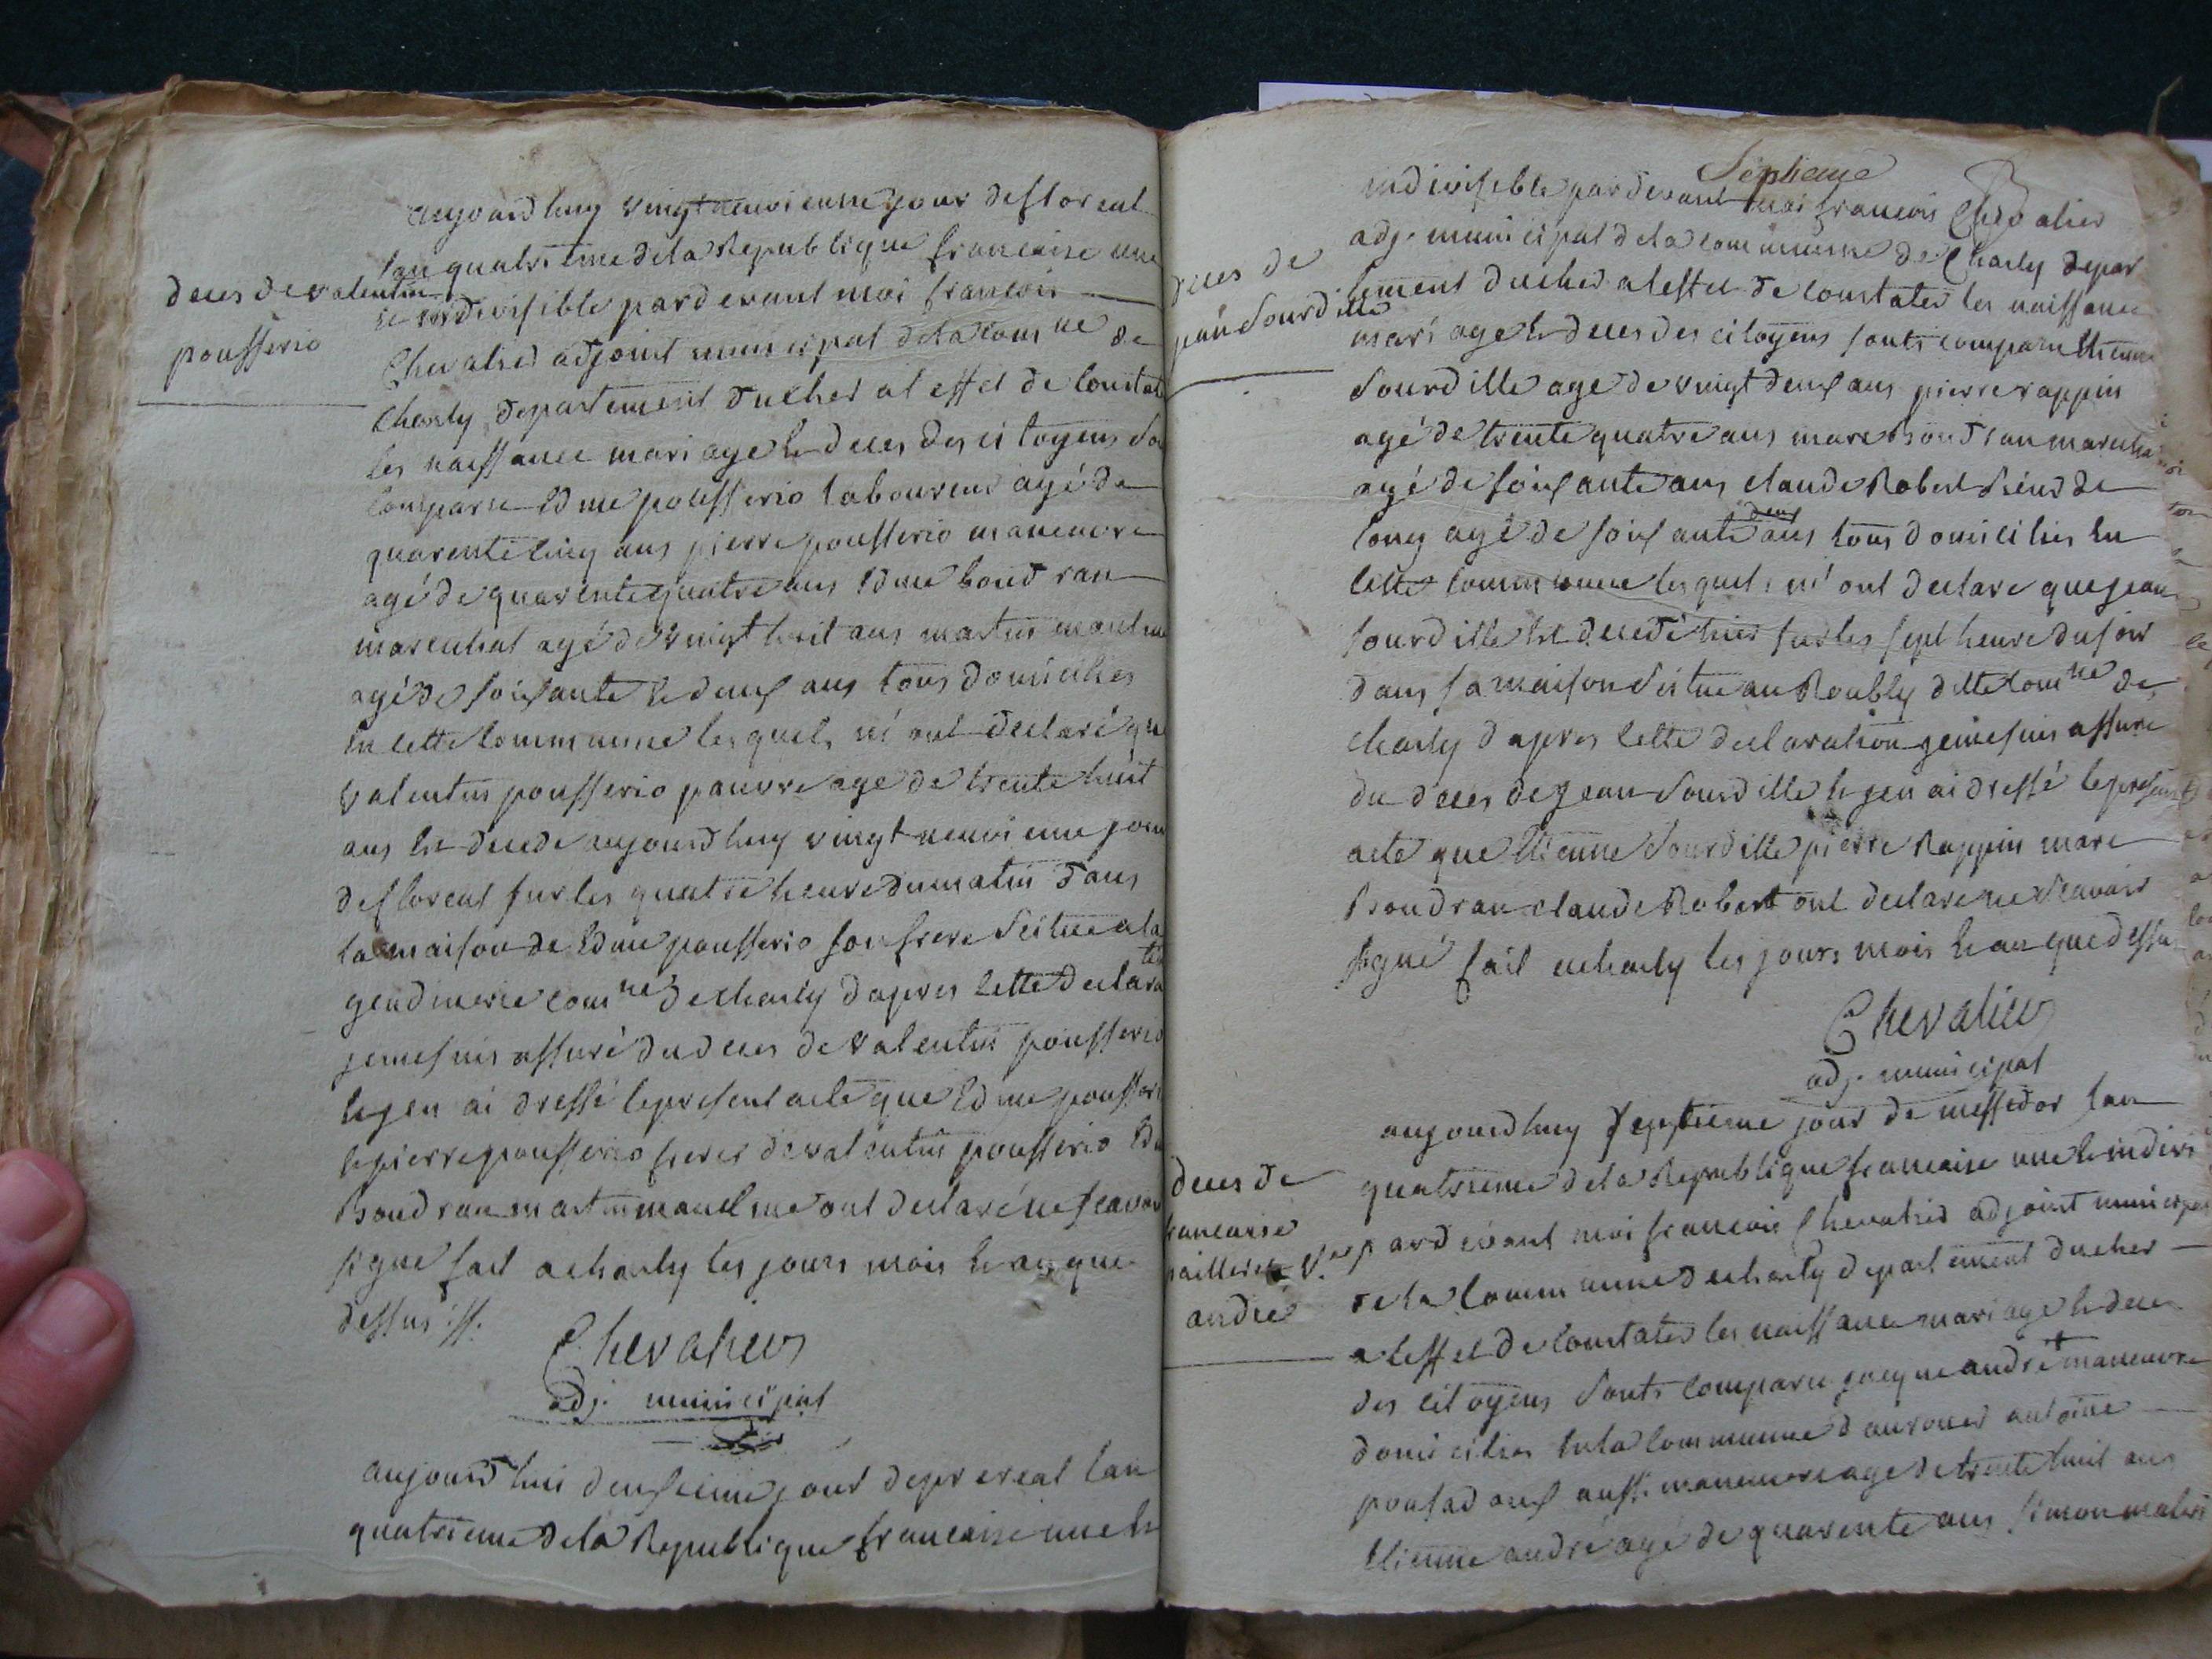 aujourdhuy vingt neuvieme jour de floreal
lan quatrieme de la Republique francaise une
deces de valentin
pousserio
et indivisible pardevant moi francois
Chevalier adjoint municipal de la com ne de
Charly departement du cher a leffet de constater
les naissance mariage et deces des citoyens son
comparu Edme pousserio laboureur agé de
quarente cinq ans pierre pousserio maneuvre
agé de quarente quatre ans Edme boudran
marechal agé de vingt huit ans martin
agé de soixante et deux ans tous domicilies
en cette commune lesquels m'ont declaré que
valentin pousserio pauvre age de trente huit
ans est decede aujourdhuy vingt neuvieme jour
de floreal sur les quatre heure du matin dans
la maison de Edme pousserio son frere scitue a la
gendmerie com ne de charly dapres cette declara
tion
je me suis assuré du deces de valentin pousserio
et jen ai dressé le present acte que Edme pousserio
et pierre pousserio freres de valentin pousserio Edme
Boudran martin ont declaré ne scavoir
signe fait a charly les jours mois et an que
dessus ://.
Chevalier
adj. municipal
aujourdhui deuxieme jour de prereal lan
quatrieme de la Republique francaise une et
Septieme
indivisible par devant moi francois Chevalier
adj. municipal de la commune de Charly depar
deces de
jean Sourdille
tement du cher a leffet de constater les naissance
mariage et deces des citoyens sonts comparu Etienne
Sourdille age de vingt deux ans pierre rappin
agé de trente quatre ans marc Boudran marechal
agé de soixante ans claude Robert
agé de soixante deux ans tous domicilies en
cette commune lesquels m'ont declare que jean
sourdille est decedé hier sur les sept heure du soir
dans sa maison scitue au Roubly dette com ne de
charly dapres cette declaration je me suis assure
du deces de jean Sourdille et jen ai dressé le present
acte que Etienne Sourdille pierre Rappin marc
Boudran claude Robert ont declare ne scavoir
signé fait a charly les jours mois et an que dessus
Chevalier
adj. municipal
aujourdhuy septieme jour de messidor lan
quatrieme de la Republique francaise une et indivi
deces de
francaise
andré
par devant moi francois Chevalier adjoint municipal
de la commune de charly departement du cher
a leffet de constater les naissance mariage et deces
des citoyens sonts comparu jacque andré maneuvre
domicilies en la commune antoine
aussi maneuvre age de trente huit ans
Etienne andre agé de quarente ans simon